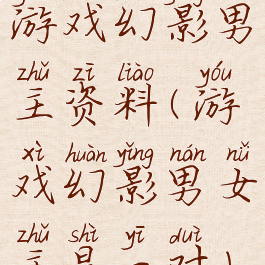 游戏幻影男
zhǔ zī liào yóu
主资料(游
xì huàn yǐng nán nǚ
戏幻影男女
zhǔ shì yī duì
主是一对)